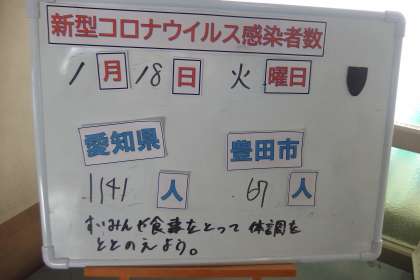 新型コロナウイルス感染者数
1月18日 火曜日
愛知県 豊田市
1141人 67人
すいみんや食事をとって 体調を
ととのえよう。